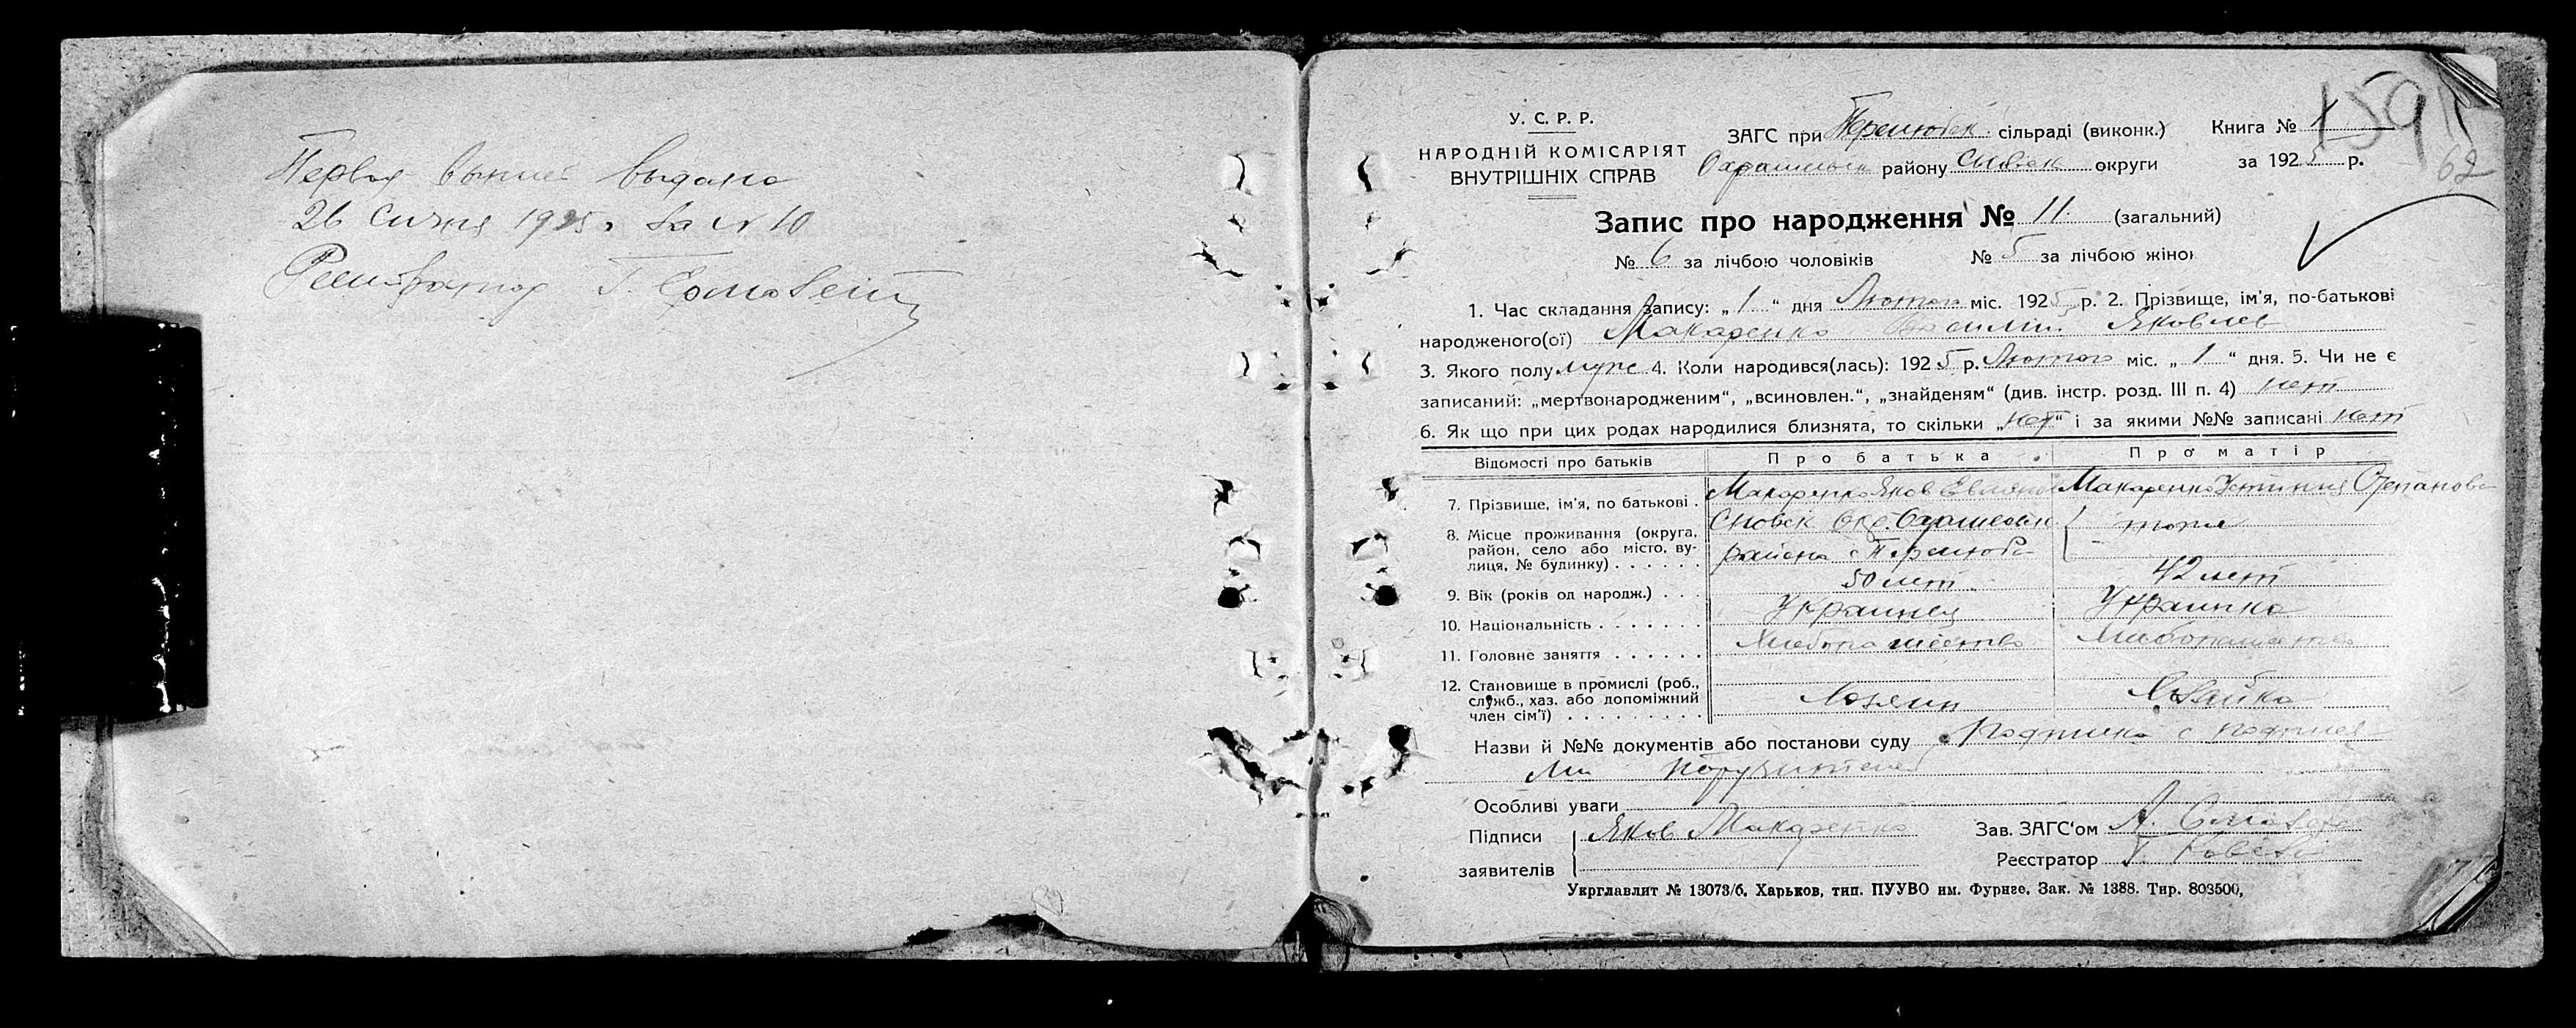 Первая выпись выдана
26 Січня 1925 г. за № 10
Регистратор Г.
У. С. Р. Р.
НАРОДНІЙ КОМІСАРІЯТ
ВНУТРІШНІХ СПРАВ
ЗАГС при Перелюбск. сільраді (виконк.)
района району Сновск округи
Книга № 1
за 1925 р.
159
62
Запис про народження № 11. (загальний)
№ 6 за лічбою чоловіків № 5 за лічбою жінок
1. Час складання запису: „ 1 “ дня Лютого міс. 1925 р. 2. Прізвище, ім'я, по-батькові
народженого(ої) Макаренко Василий Яковлев
3. Якого полу муж 4. Коли народився(лась): 1925 р. Лютого міс. „ 1 “ дня. 5. Чи не є
записаний: „мертвонародженим“, „всиновлен.“, „знайденям“ (див. інстр. розд. III п. 4) нет
6. Як що при цих родах народилися близнята, то скільки „нет“ і за якими №№ записані нет
Відомості про батьків Про батька Про матір
7. Прізвище, ім'я, по батькові . Макаренко Яков Макаренко Устиния Степанова
8. Місце проживання (округа, район, село або місто, вулиця, № будинку) . . . . . . Сновск Окр. района с Перелюб тоже
9. Вік (років од народж.) . . . 50 лет 42 лет
10. Національність . . . . . . . Украинец Украинка
11. Головне заняття . . . . . . Хлебопашество Хлебопашество
12. Становище в промислі (роб., служб., хаз. або допоміжний член сім'ї) . . . . . . . . . Хозяин Хозяйка
Назви й №№ документів або постанови суду Подписка с подписями
поручителей
Особливі уваги
Підписи заявителів Яков Макаренко
Зав. ЗАГС'ом А.
Реєстратор Г.
Укрглавлит № 13073/б. Харьков, тип. ПУУВО им. Фрунзе. Зак. № 1388. Тир. 803500,